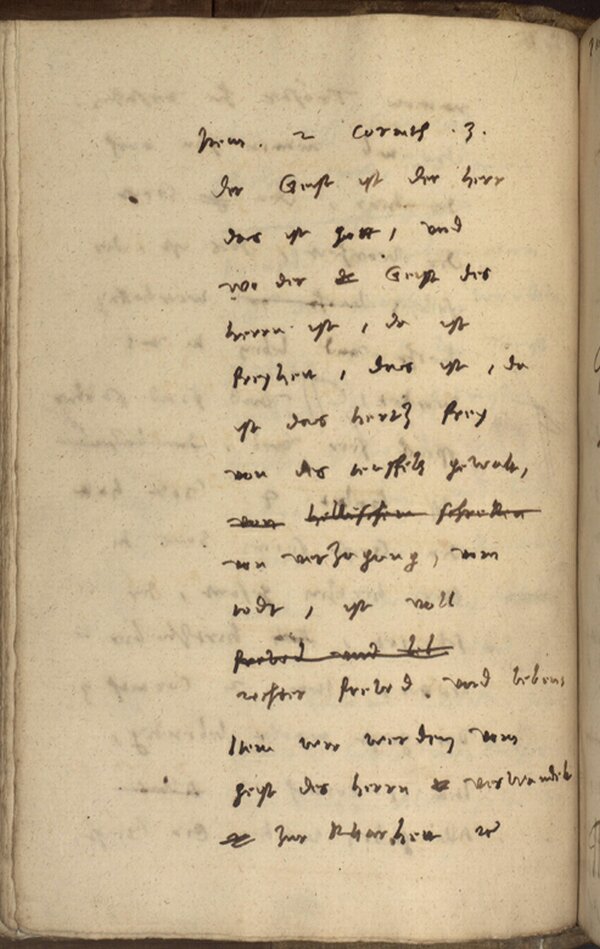 Item. 2 Corinth .3.
der Geist ist der herr
das ist gott, vnd
wo der Geist des
herrn ist, da ist
freyheit, das ist, da
ist das hertz frey
von des teuffels gewalt,
von hellischem schreken
von verzagung, vom
todt, ist voll
frewd vnd leb
rechter frewd. vnd lebens
Item wir werden vom
geist des herrn verwandelt
zur klarheit etc